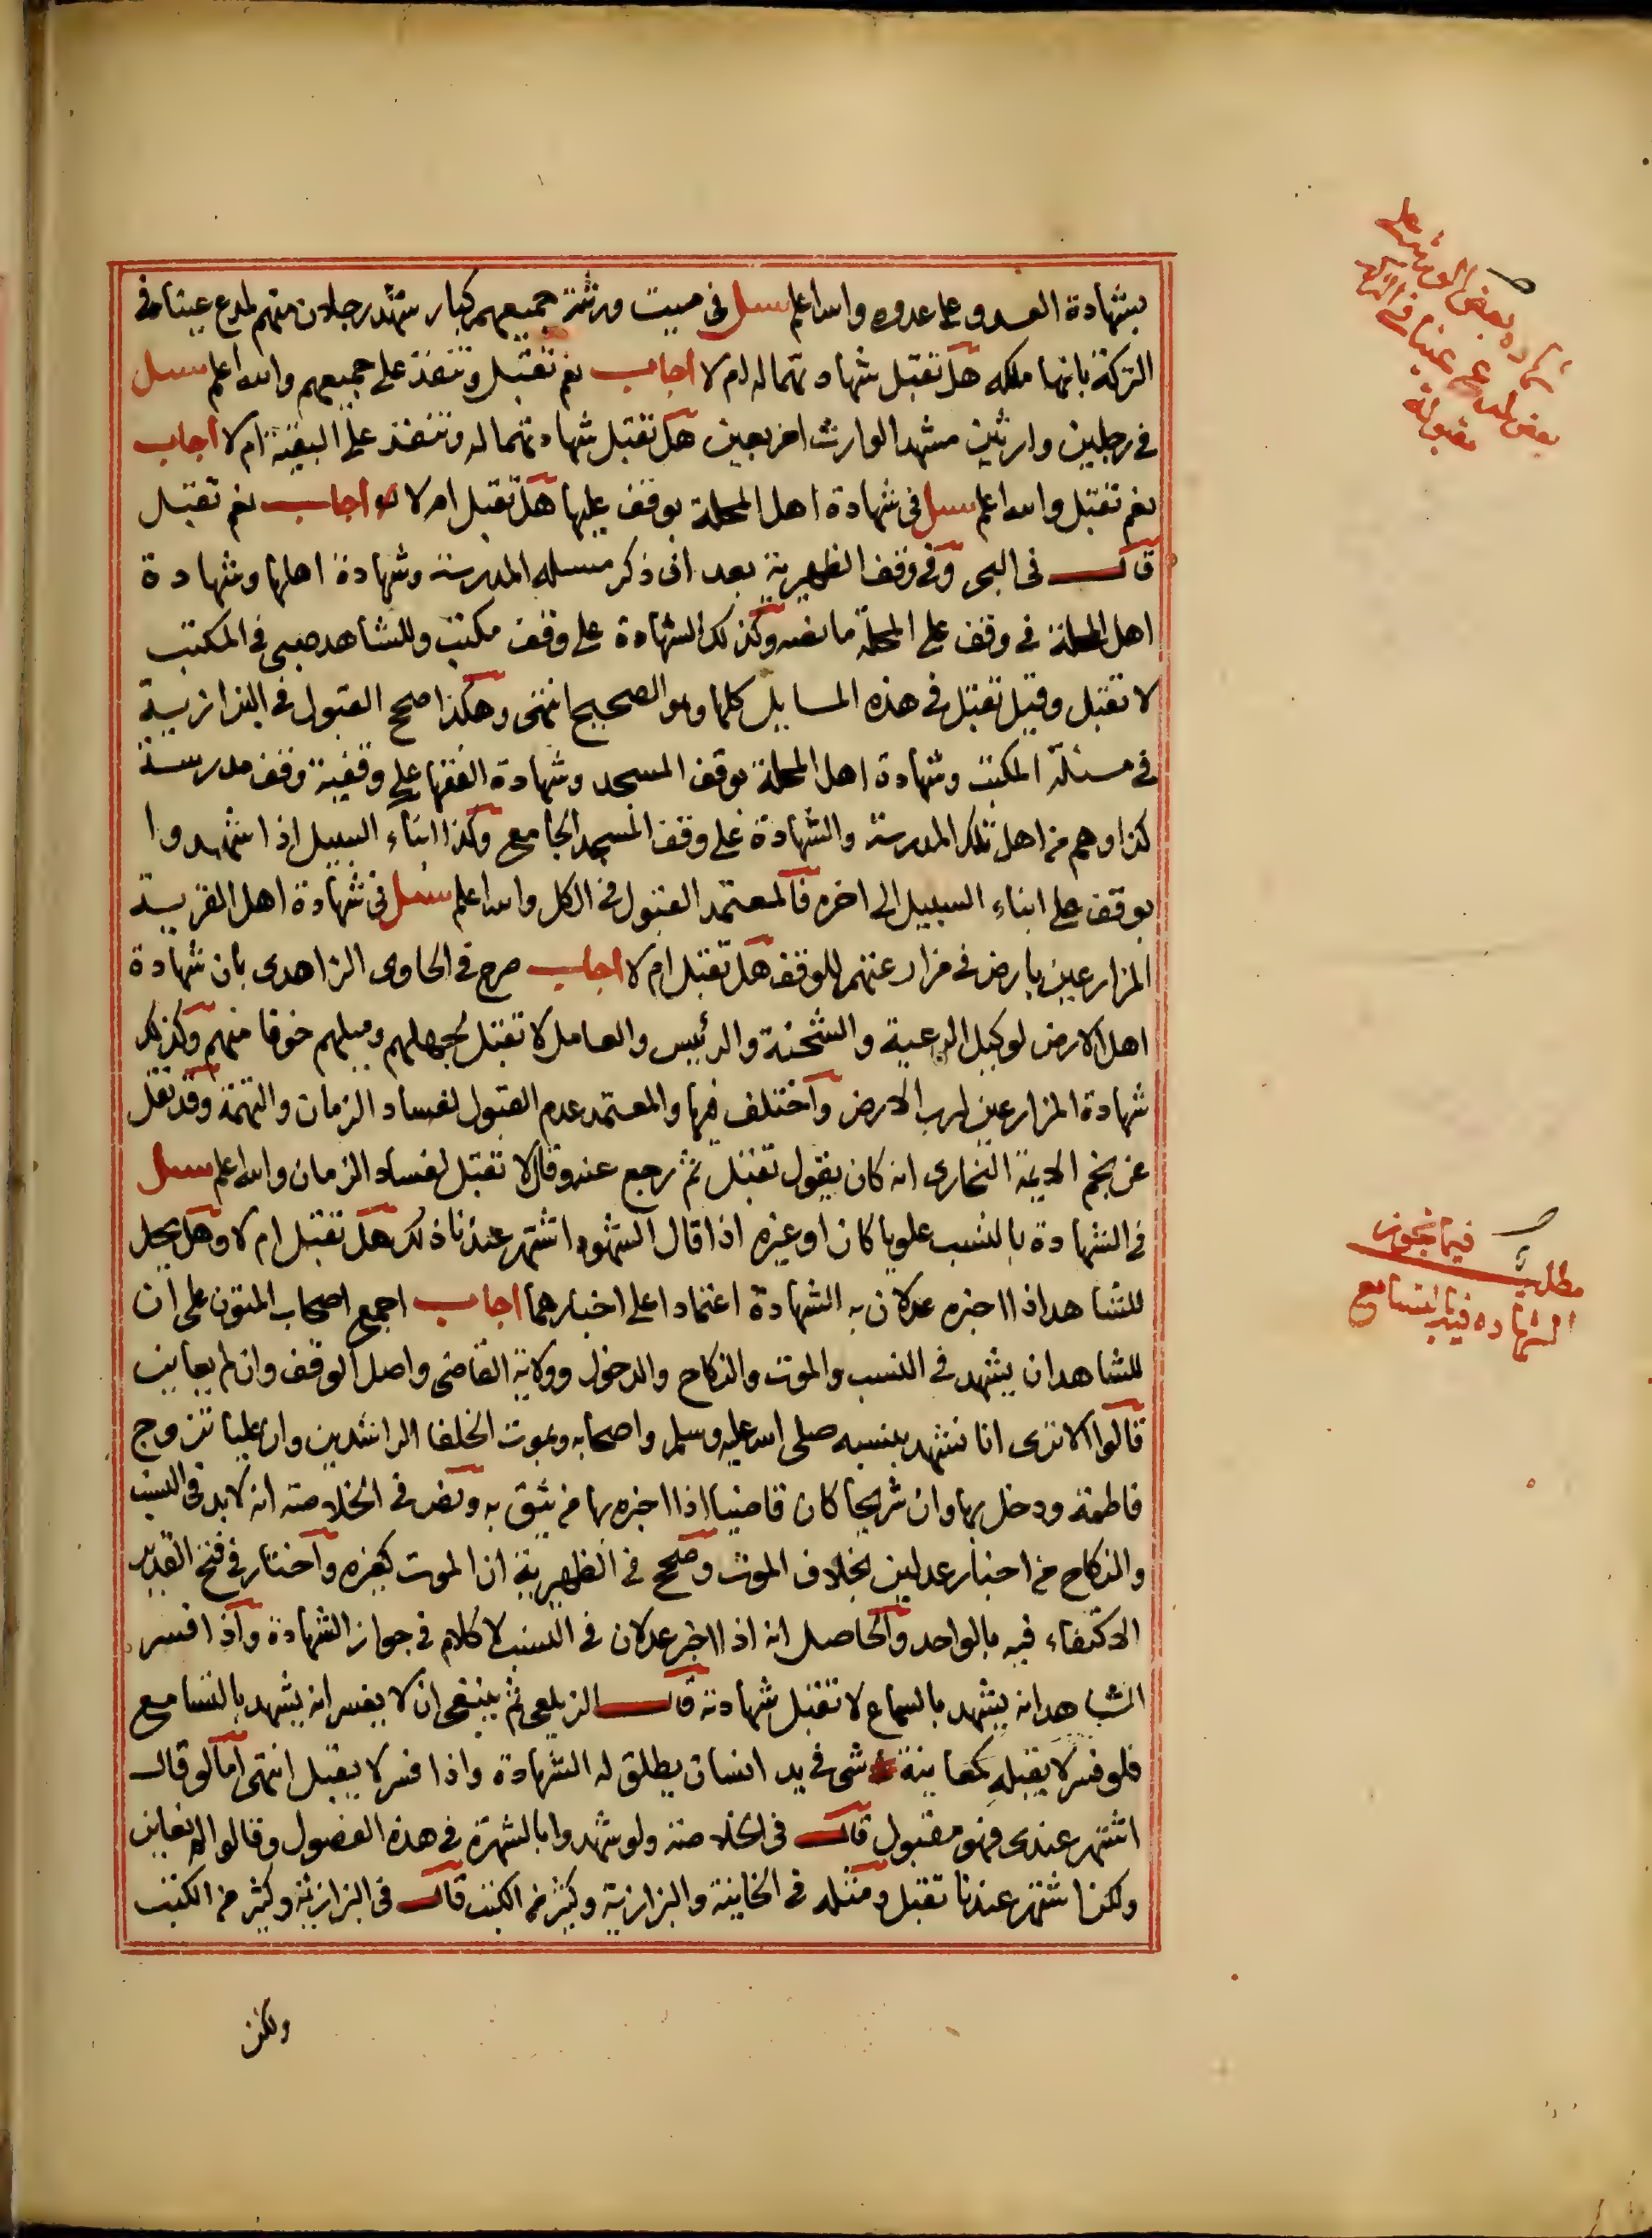 بشهادة العدو على عدوه والله اعلم سىل فى ميت ورثته جميعهم كبار شهد رجلان منهم لمدع عينا فى
التركة بانها ملكه هل تقبل شهادتهما له ام لا اجاب نعم تقبل وتنفذ على جميعهم والله اعلم سىل
فى رجلين وارثين شهدا لوارث اخر بعين هل تقبل شهادتهما له وتنفذ على البقية ام لا اجاب
نعم تقبل والله اعلم سىل فى شهادة اهل المحلة بوقف عليها هل تقبل ام لا اجاب نعم تقبل
قال فى البحر وفى وقف الظهيرية بعد ان ذكر مسىلة المدرسة وشهادة اهلها وشهادة
اهل المحلة فى وقف على المحلة ما نصه وكذلك الشهادة على وقف مكتب وللشاهد صبى فى المكتب
لا تقبل وقيل تقبل فى هذه المسايل كلها وهو الصحيح انتهى وهكذا صحح القبول فى البزازية
فى مسئلة المكتب وشهادة اهل المحلة بوقف المسجد وشهادة الفقها على وقفية وقف مدرسة
كذا وهم من اهل تلك المدرسة والشهادة على وقف المسجد الجامع وكذا ابناء السبيل اذا شهدوا
بوقف على ابناء السبيل الى اخره فالمعتمد القبول فى الكل والله اعلم سىل فى شهادة اهل القرية
المزارعين بارض فى مزارعتهم للوقف هل تقبل ام لا اجاب صرح فى الحاوى الزاهدى بان شهادة
اهل الارض لوكيل الرعية والشحنة والرئيس والعامل لا تقبل لجهلهم وميلهم خوفا منهم وكذلك
شهادة المزارعين لرب الارض واختلف فيها والمعتمد عدم القبول لفساد الزمان والتهمة وقد نقل
عن نجم الايمة البخارى انه كان يقول تقبل ثم رجع عنه وقال لا تقبل لفساد الزمان والله اعلم سىل
فى الشهادة بالنسب علويا كان او غيره اذا قال الشهود اشتهر عندنا ذلك هل تقبل ام لا وهل يحل
للشاهد اذا اخبره عدلان به الشهادة اعتمادا على اخبارهما اجاب اجمع اصحاب المتون على ان
للشاهد ان يشهد فى النسب والموت والنكاح والدخول وولاية القاضى واصل الوقف وان لم يعاين
قالوا الا ترى انا نشهد بنسبه صلى الله عليه وسلم واصحابه وبموت الخلفا الراشدين وان عليا تزوج
فاطمة ودخل بها وان شريحا كان قاضيا اذا اخبره بها من يثق به ونص فى الخلاصة انه لابد فى النسب
والنكاح من اخبار عدلين بخلاف الموت وصحح فى الظهيرية ان الموت كغيره واختار فى فتح القدير
الاكتفاء فيه بالواحد والحاصل انه اذا اخبر عدلان فى النسب لا كلام فى جواز الشهادة واذا فسر
الشاهد انه يشهد بالسماع لا تقبل شهادته قال الزيلعى ثم ينبغى ان لا يفسر انه يشهد بالتسامع
فلو فسر لا يقبله كمعاينة شى فى يد انسان يطلق له الشهادة واذا فسر لا يقبل انتهى اما لو قال
اشتهر عندى فهو مقبول قال فى الخلاصة ولو شهدوا بالشهرة فى هذه الفصول وقالوا لم نعاين
ولكن اشتهر عندنا تقبل ومثله فى الخانية والبزازية وكثير من الكتب قال فى البزازية وكثير من الكتب
ولكن
شهادة بعض الورثة على
بعض لمدع عينا فى التركة
مقبولة
مطلب فيما تجوز
الشهادة فيه بالتسامع